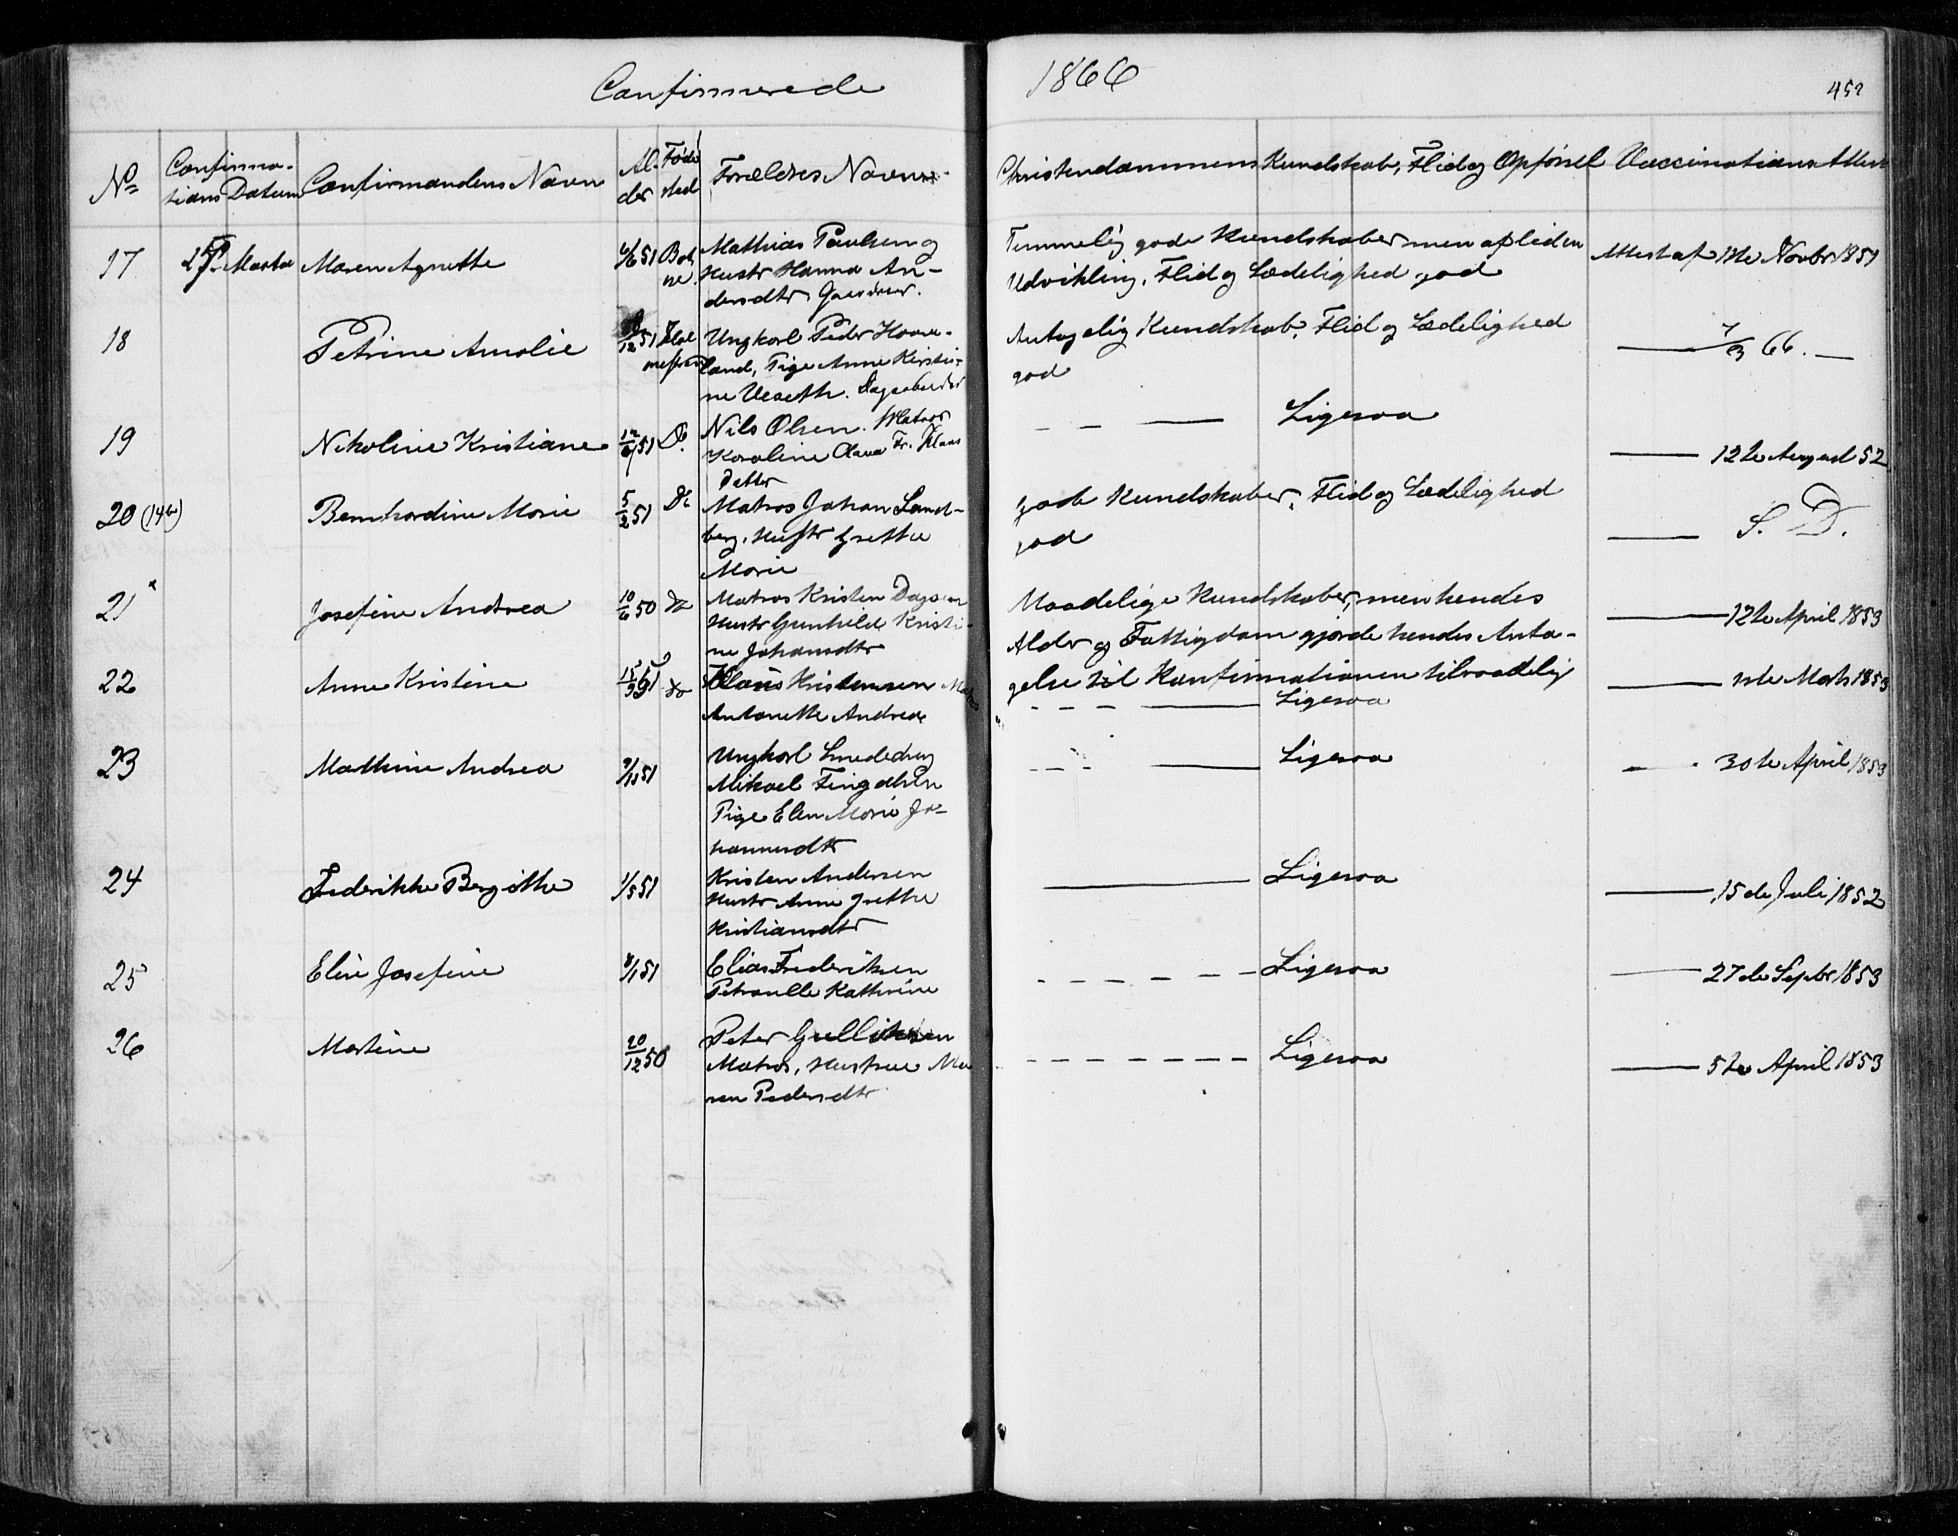 Confirmerede 1866
452
No
Confirma-
tions Datum
Confirmandens Navn
Al-
der
Føde
sted
Forældres Navne
Christendommens Kundskab, Flid og Opførsel
Vaccinations Attest
17 Maren Agnette 51
Mathias Paulsen og
Hustr Hanna An-
dersdtr
Temmelig gode Kundskaber men af liden
Udvikling, Flid og Sædelighed god
Attest af Novbr 1851
18 Petrine Amalie 12 51
Ungkarl Peder
land, Pige Anne Kristi-
ne
Antagelig Kundskab, Flid og Sædelighed
god
66.
19 Nikoline Kristiane 12/6 51 Do.
Nils Olsen. Matros
Karoline Olava
datter
Ligesaa
12te August 52
20 (14b) Bernhardine Marie 5/2 51 Do
Matros Johan Land-
berg, Hustr Grethe
Marie
gode Kundskaber, Flid og Sædelighed
god
S. D.
21 Josefine Andrea 10/6 50 do
Matros Kristen
Hustr Gunhild Kristi-
ne Johansdtr
Maadelige Kundskaber, men hendes
Alder og Fattigdom gjorde hendes Anta-
gelse til Konfirmationen tilraadelig
12te April 1853
22 Anne Kristine do
Klaus Kristensen
Antonette Andrea
Ligesaa
Marts 1853
23 Mathine Andrea 51
Ungkarl
Mikael
Pige Elen Marie Jo-
hannesdtr
Ligesaa
30te April 1853
24 Frederikke Bergitte 1/5 51
Kristen Andersen
Hustr Anne Grethe
Kristiansdtr
Ligesaa
15de Juli 1852
25 Elise Josefine 51
Elias Frederiksen
Petronelle Kathrine
Ligesaa
27de Septbr 1853
26 Martine 20/12 50
Peter Gulliksen
Matros, Hustrue Ma
ren Pedersdtr
Ligesaa
5te April 1853